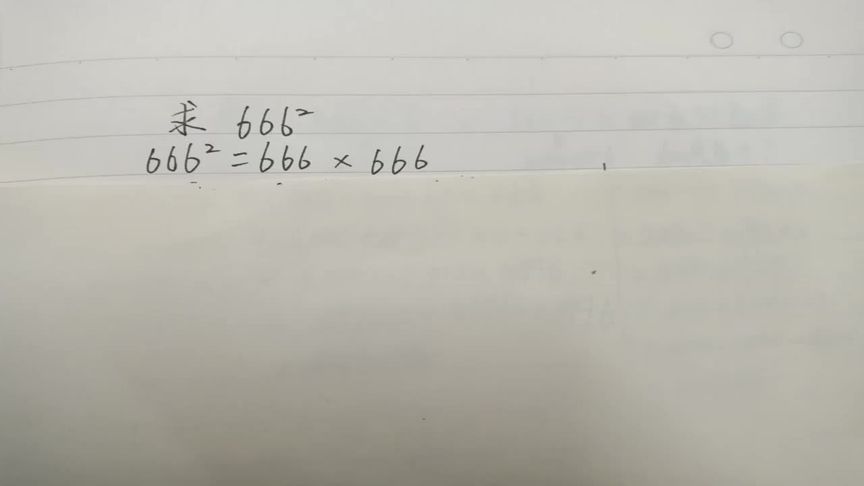 求 666²
666² = 666 × 666